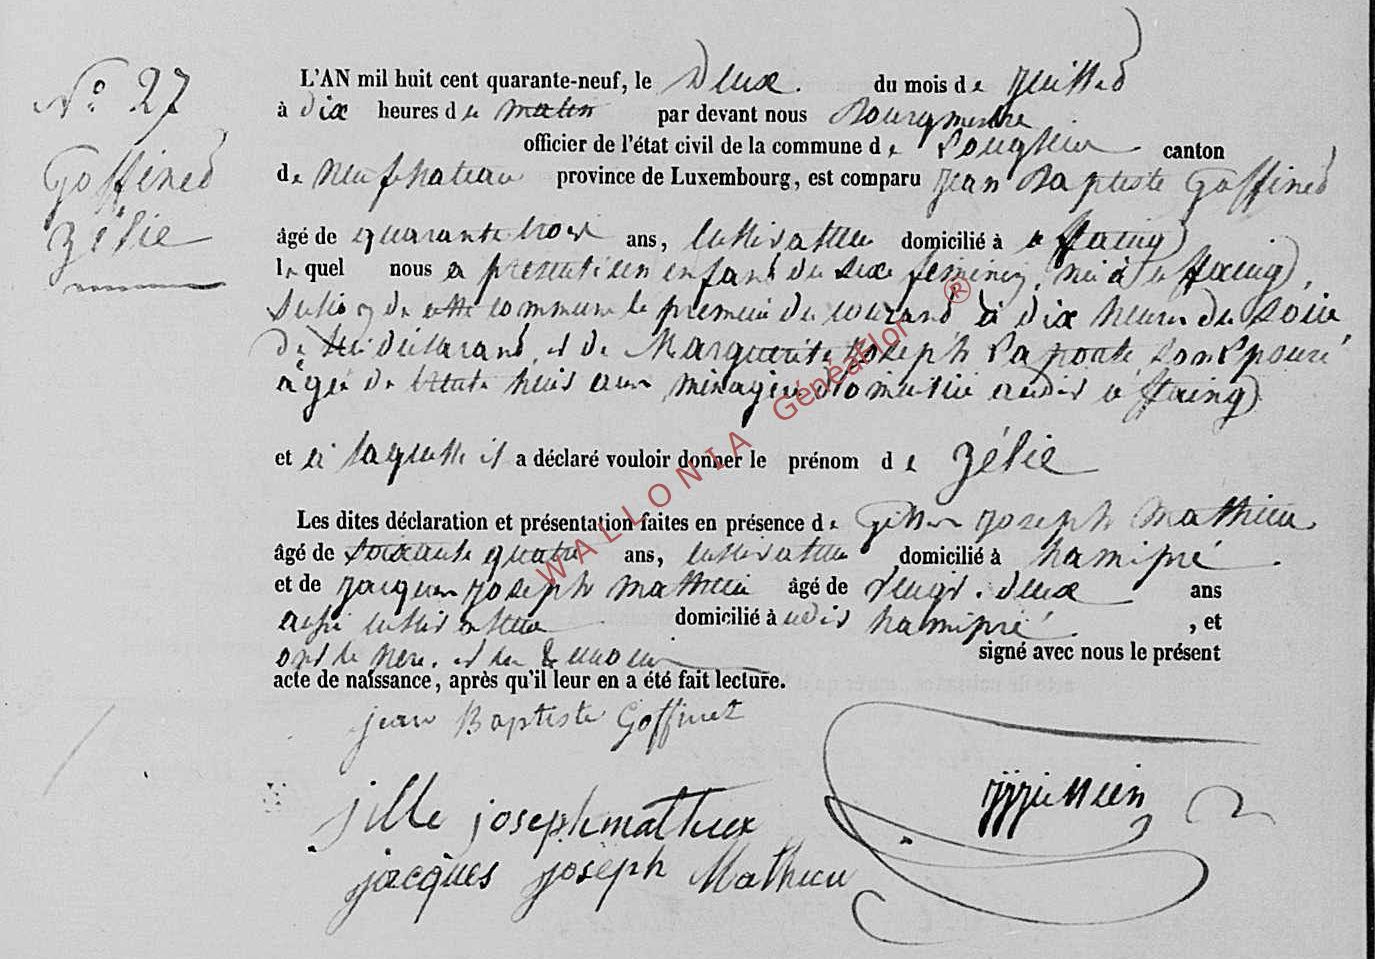 N° 27
Goffinet
Zélie
L'AN mil huit cent quarante-neuf, le Deux du mois de juillet
à dix heures de matin par devant nous Bourgmestre
officier de l'état civil de la commune de Longlier canton
de neufchateau province de Luxembourg, est comparu jean Baptiste Goffinet
âgé de quarante trois ans, cultivateur domicilié à offaing
lequel nous a presenté un enfant du sexe feminin, né à offaing
Section de cette commune le premier du courant, à dix heures du Soir
de lui déclarant, et de Marguerite Joseph Laporte son Epouse
agée de trente huit ans ménagère domiciliée audit offaing
et à laquelle il a déclaré vouloir donner le prénom de Zélie
Les dites déclaration et présentation faites en présence de Gille joseph mathieu
âgé de soixante quatre ans, cultivateur domicilié à hamipré
et de jacques joseph mathieu âgé de vingt-deux ans
aussi cultivateur domicilié à udit hamipré, et
ont le père, et les témoins signé avec nous le présent
acte de naissance, après qu'il leur en a été fait lecture.
jean Baptiste Goffinet
jille joseph mathieu
jacques joseph Mathieu
WALLONIA Généaflor ®